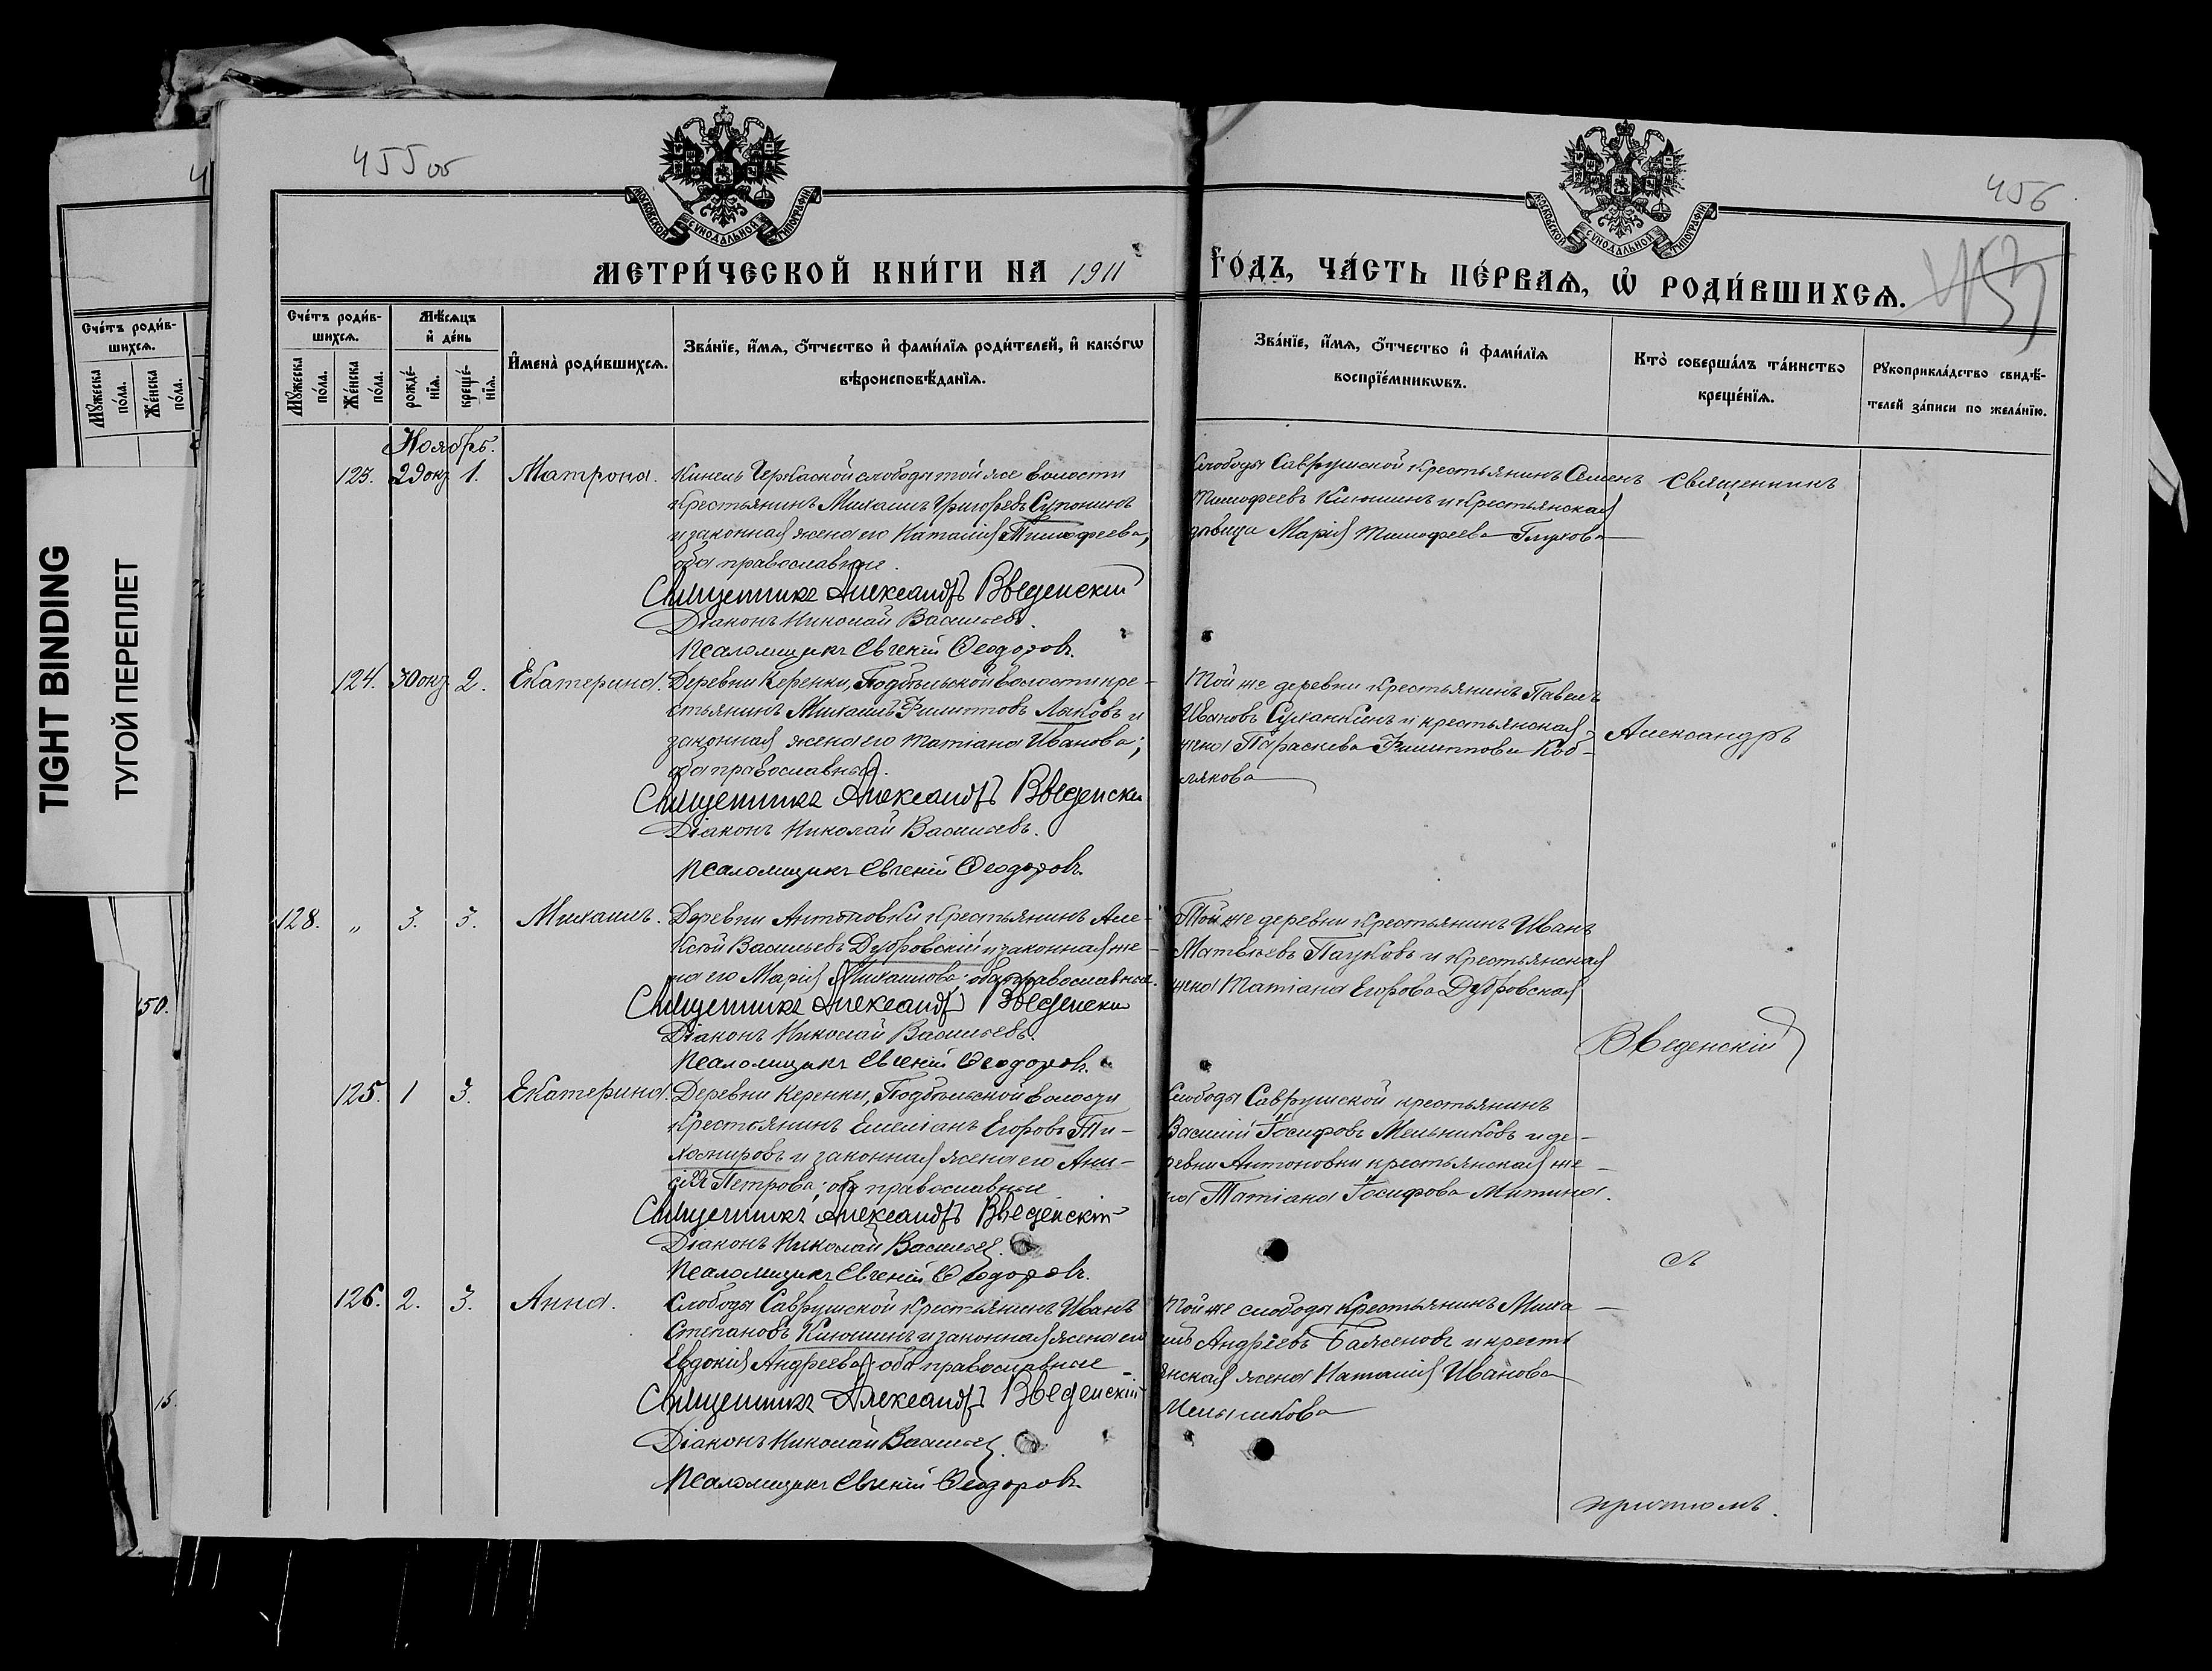 455 об
456
МОСКОВСКОЙ СѴНОДАЛЬНОЙ ТИПОГРАФІИ
МОСКОВСКОЙ СѴНОДАЛЬНОЙ ТИПОГРАФІИ
МЕТРИ́ЧЕСКОЙ КНИ́ГИ НА 1911 ГО́ДЪ, ЧА́СТЬ ПЕ́РВАѦ, Ѡ҆ РОДИ́ВШИХСѦ.
453
Сче́тъ роди́в-
шихсѧ.
Мꙋ́жеска по́ла.
Же́нска по́ла.
Мѣ́сѧцъ
и҆ де́нь
рожде́-
нїѧ.
креще́-
нїѧ.
И҆мена̀ роди́вшихсѧ.
Зва́нїе, и҆́мѧ, ѻ҆́тчество и҆ фами́лїѧ роди́телей, и҆ како́гѡ
вѣроисповѣ́данїѧ.
Зва́нїе, и҆́мѧ, ѻ҆́тчество и҆ фами́лїѧ
воспрїе́мникѡвъ.
Кто̀ соверша́лъ та́инство
креще́нїѧ.
Рꙋкоприкла́дство свидѣ́-
телей за́писи по жела́нїю.
Сче́тъ роди́в-
шихсѧ.
Мꙋ́жеска по́ла.
Же́нска по́ла.
TIGHT BINDING
ТУГОЙ ПЕРЕПЛЕТ
50.
15.
Ноябрь.
123. 29 окт 1. Матрона. Кинель Черкаской слободы той же волости
крестьянинъ Михаилъ Григорьевъ Супонинъ
и законная жена его Наталія Тимофеева;
оба православные.
Священникъ Александръ Введенскій
Діаконъ Николай Васильевъ.
Псаломщикъ Евгеній Ѳеодоровъ.
Слободы Саврушской крестьянинъ Семенъ
Тимофеевъ Клюшинъ и крестьянская
дѣвица Марія Тимофеева Глухова
Священникъ
124. 30 окт 2. Екатерина. Деревни Керенки, Подбѣльской волости кре-
стьянинъ Михаилъ Филипповъ Лыковъ и
законная жена его Татіана Иванова;
оба православные.
Священникъ Александръ Введенскій
Діаконъ Николай Васильевъ.
Псаломщикъ Евгеній Ѳеодоровъ.
Той же деревни крестьянинъ Павелъ
Ивановъ Суханкинъ и крестьянская
жена Параскева Филиппова Коб-
лякова
Александръ
128. „ 3. 3. Михаилъ. Деревни Антоновки крестьянинъ Але-
ксѣй Васильевъ Дубровскій и законная же-
на его Марія Михаилова; оба православные.
Священникъ Александръ Введенскій
Діаконъ Николай Васильевъ.
Псаломщикъ Евгеній Ѳеодоровъ.
Той же деревни крестьянинъ Иванъ
Матвѣевъ Пауковъ и крестьянская
жена Татіана Егорова Дубровская
Введенскій
125. 1 3. Екатерина. Деревни Керенки, Подбѣльской волости
крестьянинъ Емеліанъ Егоровъ Ти-
хомировъ и законная жена его Ани-
сія Петрова; оба православные
Священникъ Александръ Введенскій
Діаконъ Николай Васильев.
Псаломщикъ Евгеній Ѳеодоровъ.
Слободы Саврушской крестьянинъ
Василій Іосифовъ Мельниковъ и де-
ревни Антоновки крестьянская же-
на Татіана Іосифова Митина.
съ
126. 2. 3. Анна. Слободы Саврушской крестьянинъ Иванъ
Степановъ Клюшинъ и законная жена его
Евдокія Андреева; оба православные
Священникъ Александръ Введенскій
Діаконъ Николай Васильев.
Псаломщикъ Евгеній Ѳеодоровъ.
Той же слободы крестьянинъ Миха-
илъ Андреевъ Баженовъ и кресть
янская жена Наталія Иванова
Мельникова
причтомъ.